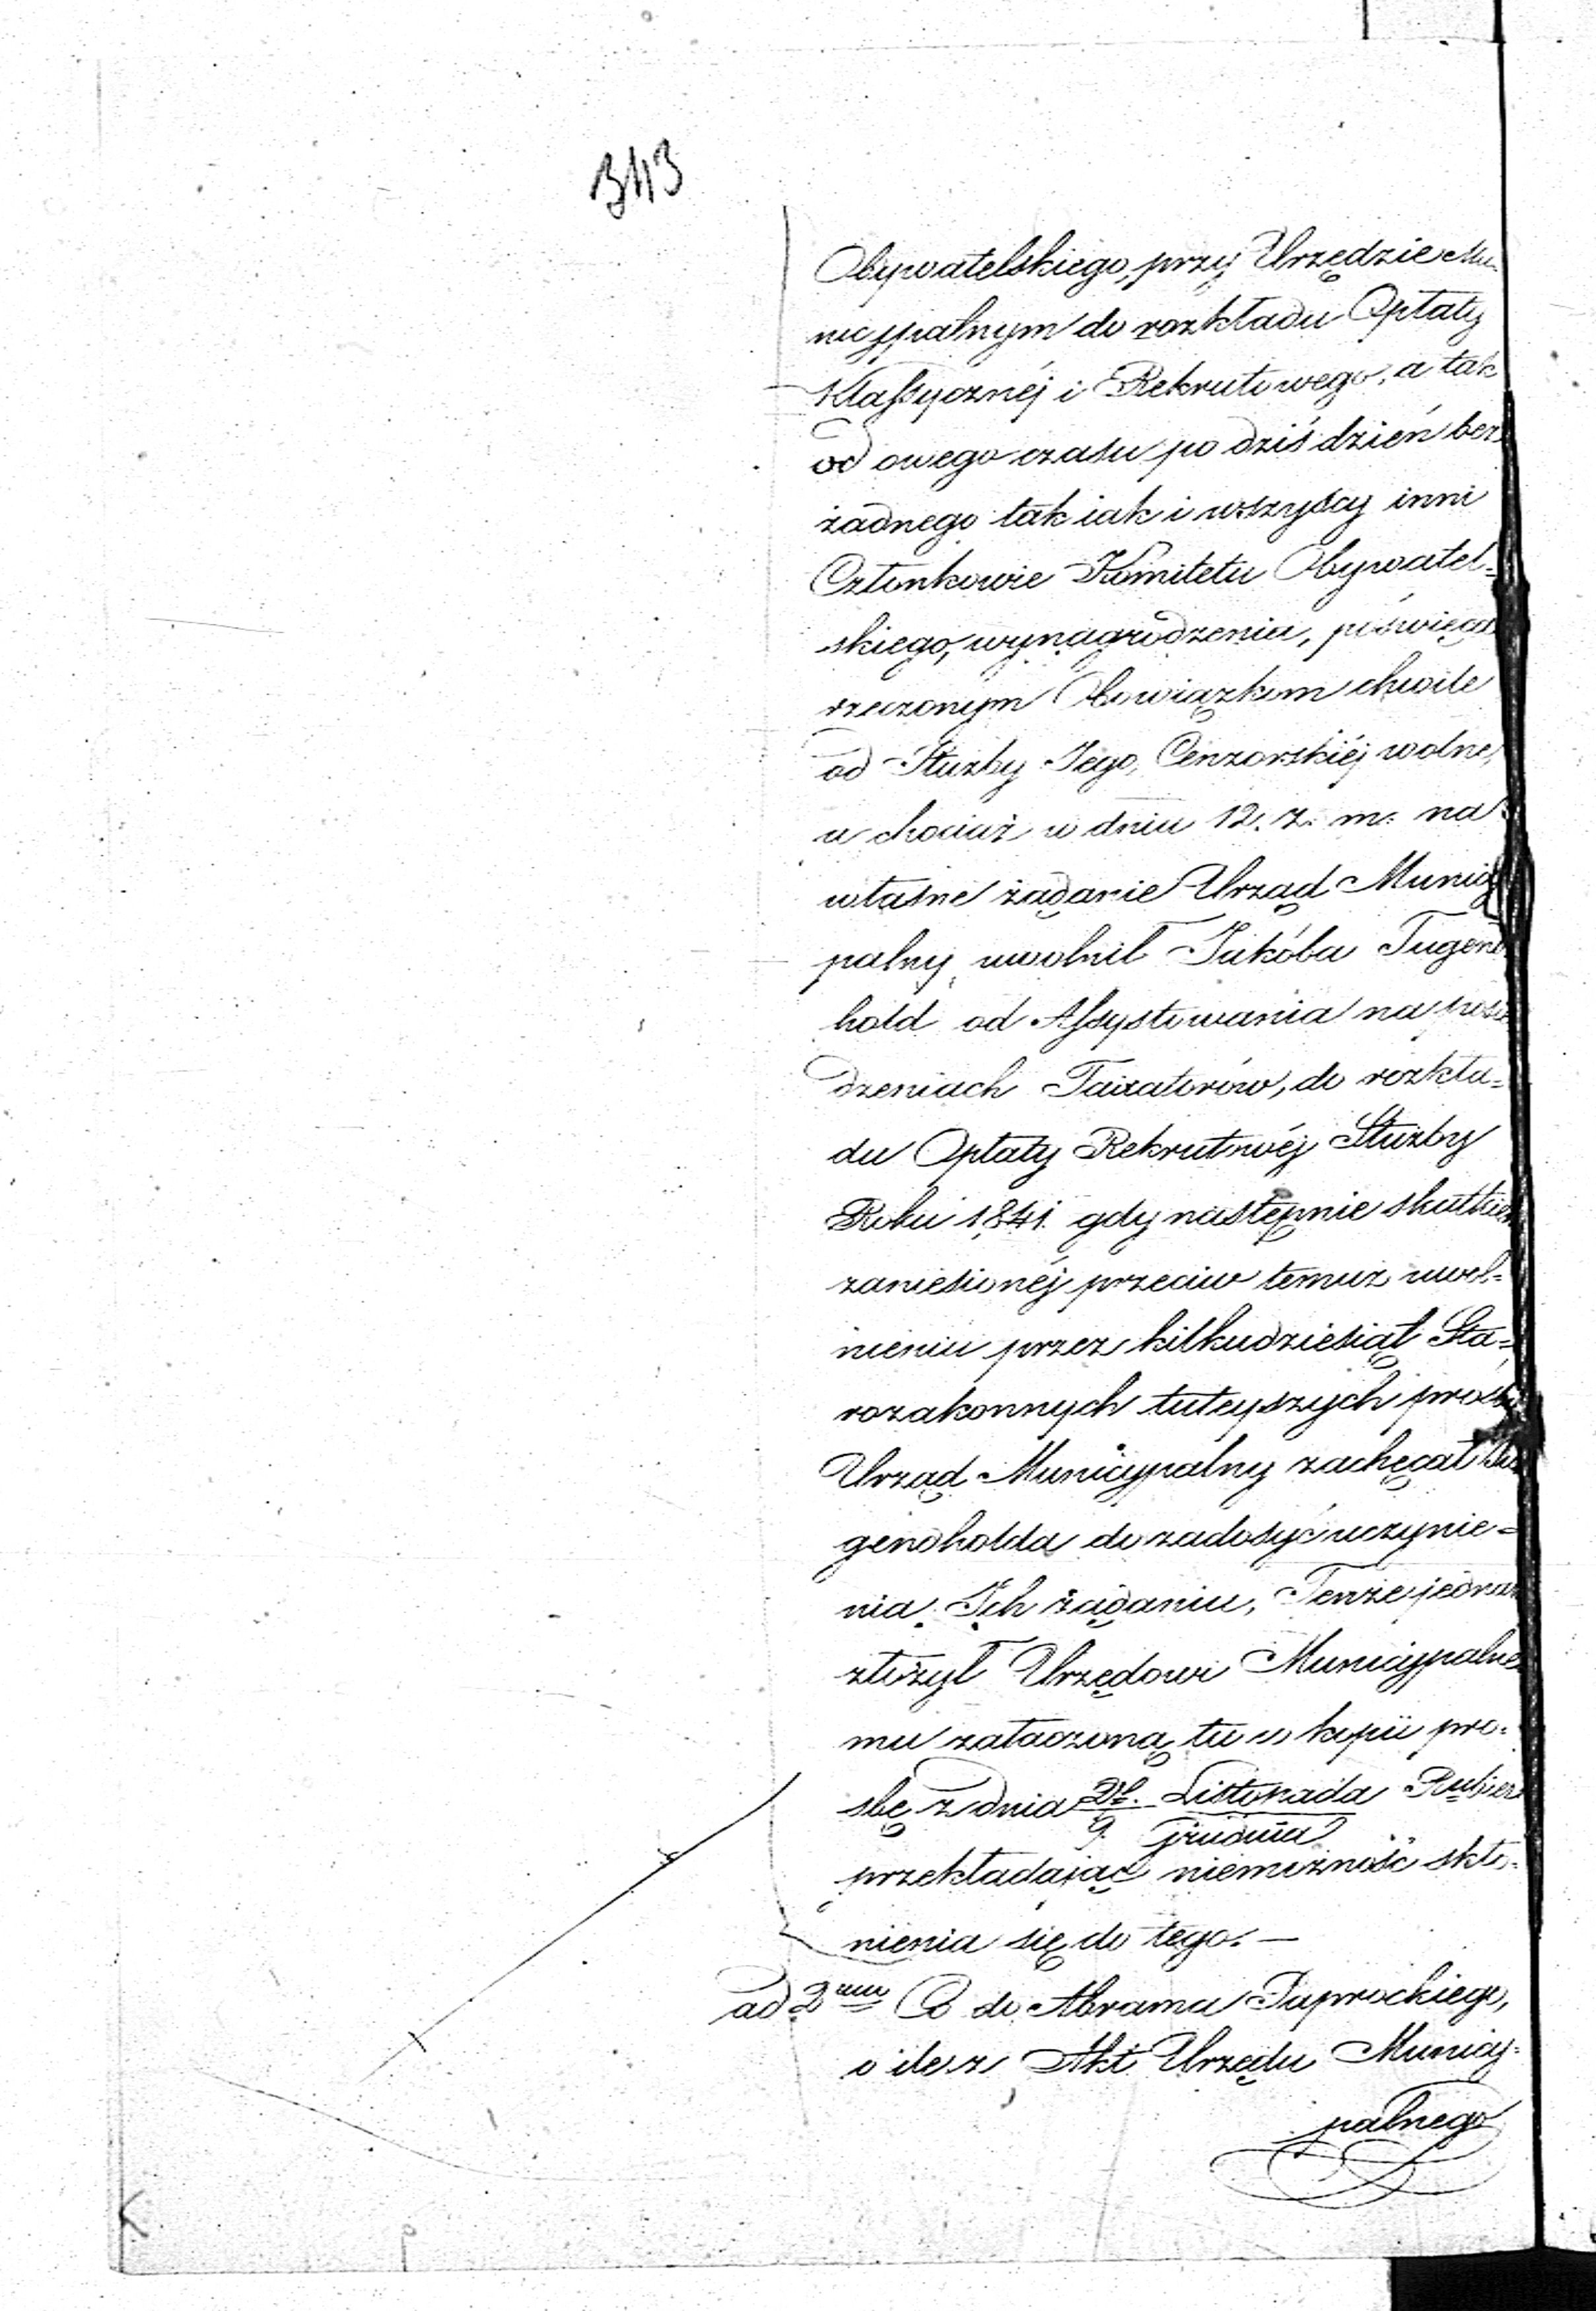 343
Obywatelskiego, przy Urzędzie Mu-
nicypalnym do rozkładu Opłaty
Klassycznéj i Rekrutowego, a tak
od owego czasu po dziś dzień bez
żadnego tak iak i wszyscy inni
Członkowie Komitetu Obywatel=
skiego, wynagrodzenia, poświęca
rzeczonym Obowiązkom chwile
od Służby Jego, Cenzorskiéj wolne,
a chociaż w dniu 12. z. m. na
własne żądanie Urząd Munici
palny uwolnił Jakóba Tugend
hold od Assystowania na posie
dzeniach Taxatorów, do rozkła=
du Opłaty Rekrutowéj Służby
Roku 1841. gdy następnie skutkiem
zaniesionéj przeciw temuż uwol=
nieniu przez kilkudziesiąt Sta=
rozakonnych tuteyszych prośby
Urząd Municypalny zachęcał Tu
gendholda do zadosyć uczynie=
nia Ich żądaniu, Tenże jednak
złożył Urzędowi Municypalne
mu załączoną tu w kopii pro=
śbę z dnia Listopada
9. Grudnia
przekładając niemożność skło=
nienia się do tego. —
ad 2um Co do Abrama Paprockiego,
o ile z Akt Urzędu Municy=
palnego